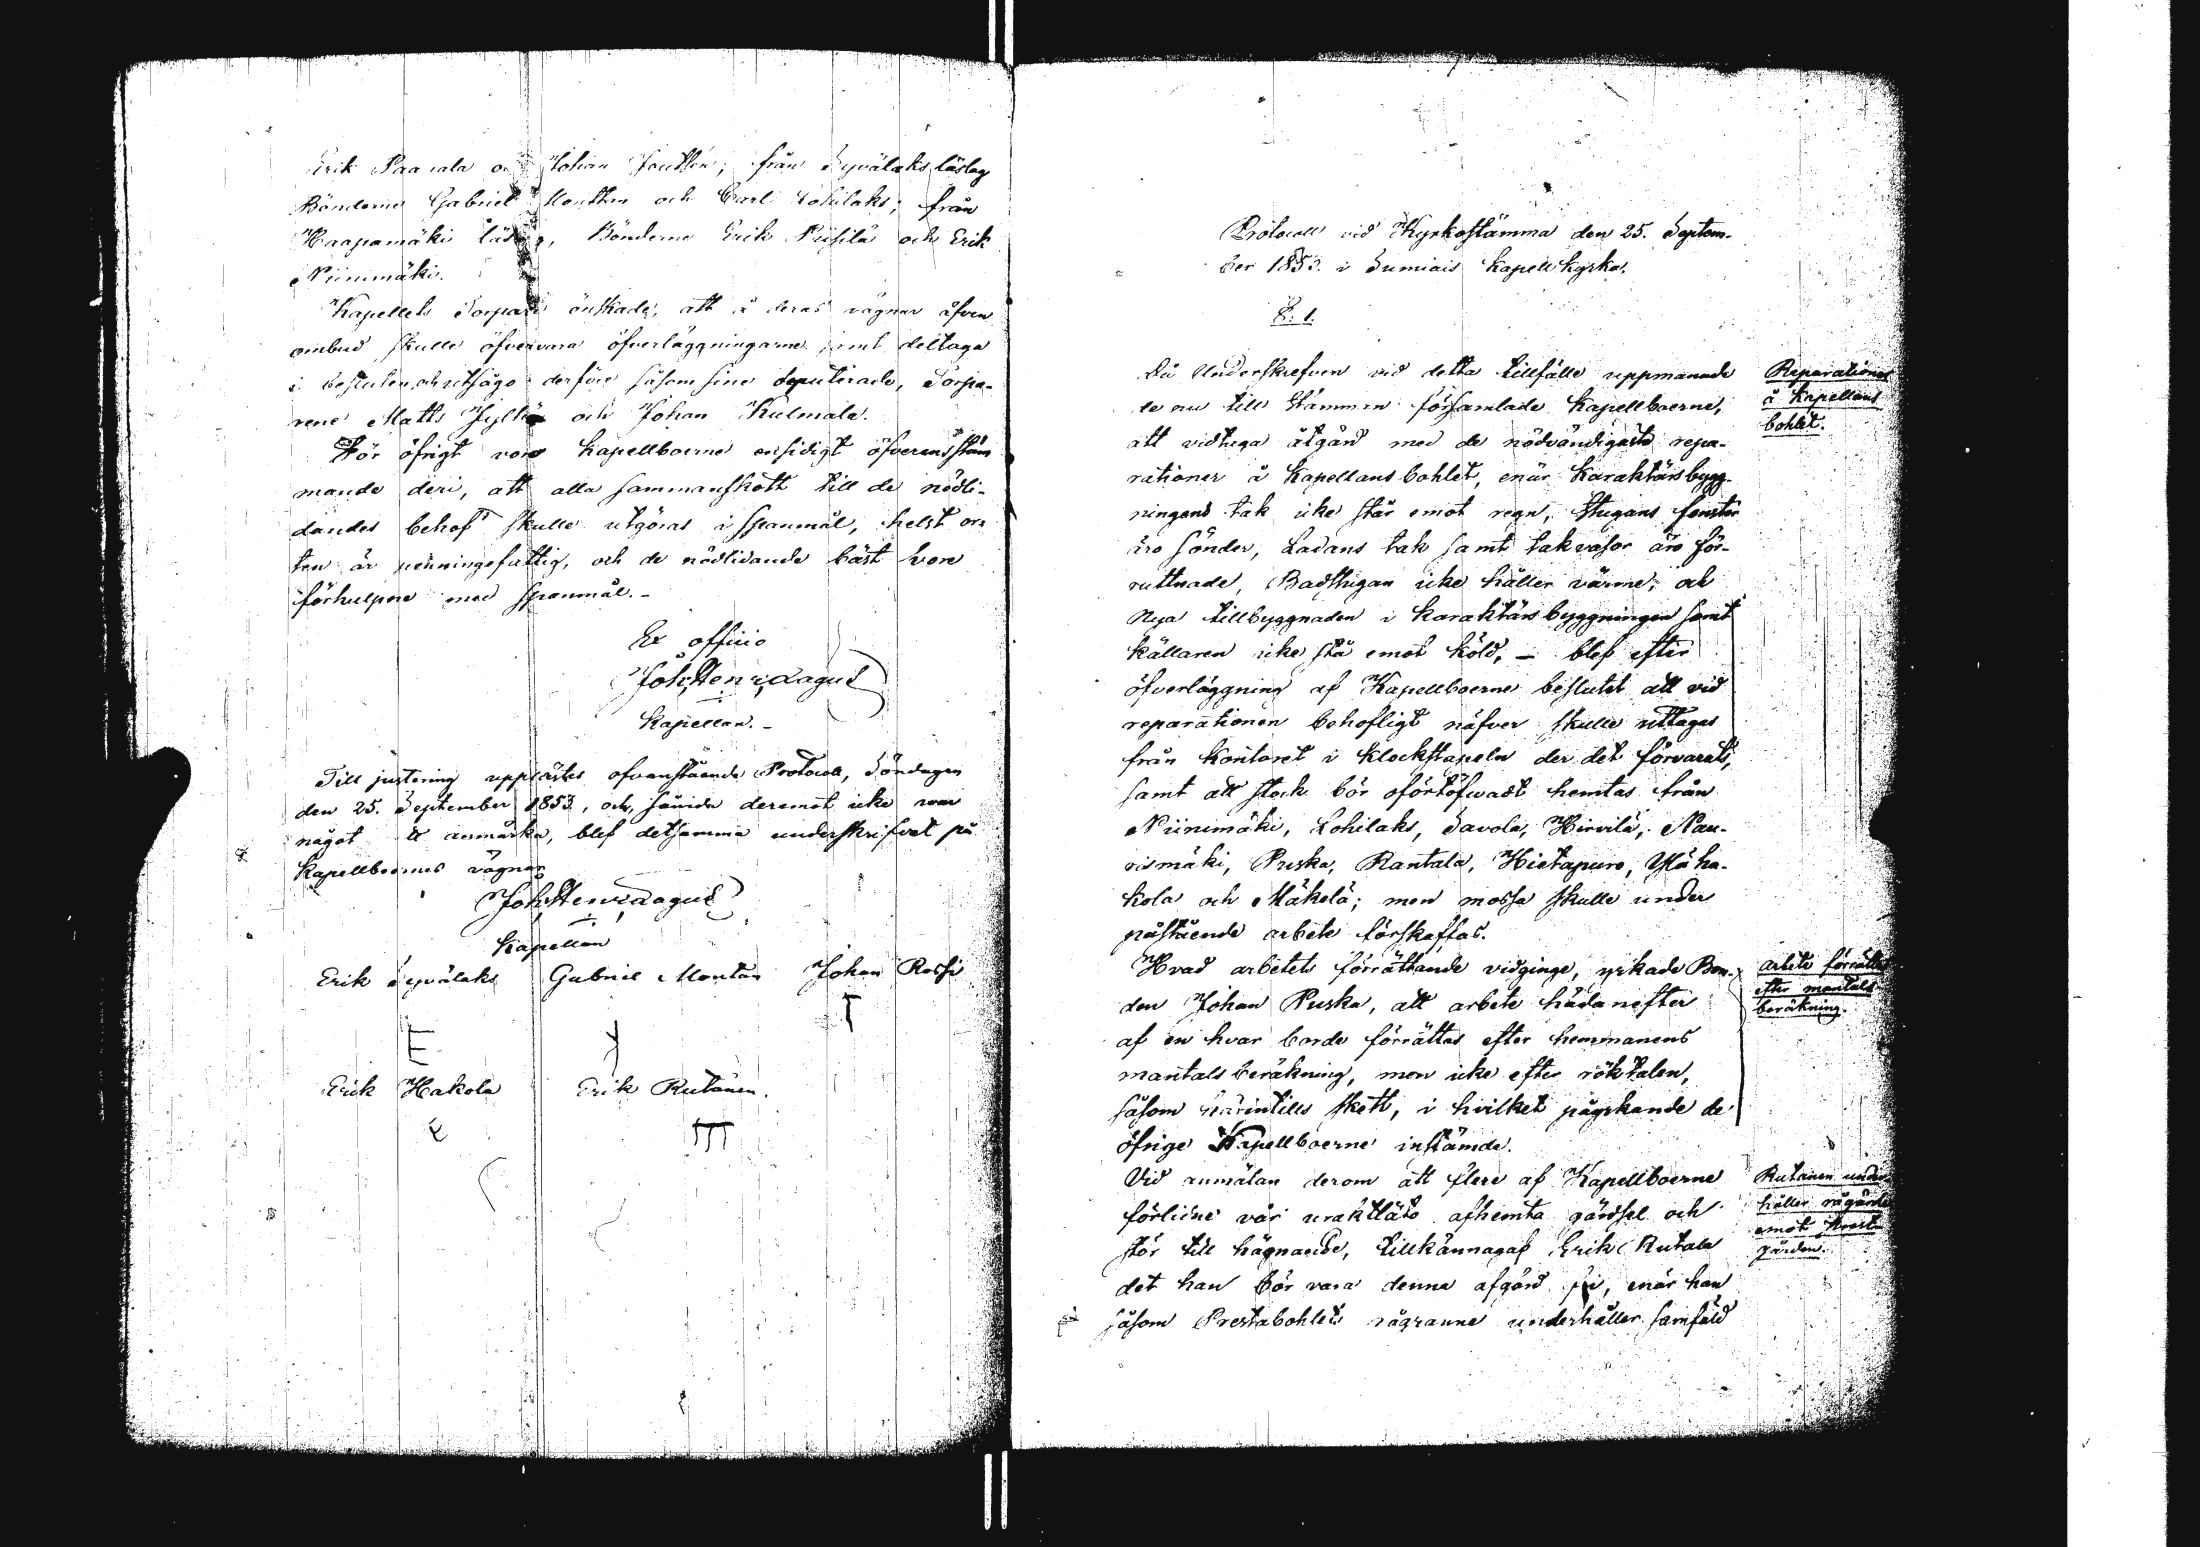 Erik Paarala och Johan Joutsen; från Syvälaks läslag
Bönderne Gabriel Moutten och Carl Lohilaks; från
Haapamäki läslag, Bönderne Erik Piispila och Erik
Niinimäki.
Kapellets Torpare önskade, att å deras vägnar äfven
ombud skulle öfvervara öfverläggningarne samt deltaga
i besluten och utsågo derföre såsom sine deputerade, Torpa-
rene Matts Jylhä och Johan Kulmala.
För öfrigt voro Kapellboerne ensidigt öfverensstäm
mande deri, att alla sammanskott till de nödli-
dandes behof skulle utgöras i spanmål, helst or-
ten är penningefattig, och de nödlidande bäst vore
förhulpne med spanmål.-
Ex officio
Joh. Stenridagus
Kapellan.-
Till justering upplästes ofvanstående Protocoll, Söndagen
den 25. September 1853, och, såvida deremot icke war
något att anmärka, blef detsamma underskrifvet på
Kapellboernes vägnar
Joh. Stenridagus
Kapellan
Erik Syvälaks Gabriel Moutan Johan Rossi
Erik Hakola Erik Rutanen.
Protocoll vid Kyrkostämma den 25. Septem-
ber 1853. i Sumiais Kapellkyrka.
§. 1.
Då Underskrefven vid detta tillfälle uppmanade
de nu till Stämman församlade Kapellboerne,
att vidtaga åtgärd med de nödvändigaste repa-
rationer å Kapellansbohlet, enär Karaktärsbygg-
ningens tak icke står emot regn, Stugans fenster
äro sönder, Ladans tak samt takvasor äro för-
ruttnade, Badstugan icke håller värme; och
nya tillbyggnaden i Karaktärsbyggningen samt
källaren icke stå emot köld, - blef efter
öfverläggning af Kapellboerne beslutet att vid
reparationen behofligt näfver skulle uttagas
från Kontoret i Klockstapeln der det förvarats,
samt att stock bör ofördröfwadt hemtas från
Niinimäki, Lohilaks, Savola, Hirvilä, Nau-
rismäki, Puska, Rantala, Hietapuro, Ylä ha-
kola och Mäkelä; men mossa skulle under
påstående arbete förskaffas.
Hvad arbetets förrättande vidginge, yrkade Bon-
den Johan Puska, att arbete hädanefter
af en hvar borde förrättas efter hemmanens
mantals beräkning, men icke efter röktalen,
såsom härintills skett, i hvilket påyrkande de
öfrige Kapellboerne instämde.
Vid anmälan derom att flere af Kapellboerne
förlidne vår uraktlåto afhemta gärdsel och
stör till hägnande, tillkännagaf Erik Rutala
det han bör vara denna afgärd fri, enär han
såsom Prestabohlets rågranne underhåller samfäld
Reparationer
å Kapellans
bohlet.
Arbete förrättas
efter mantals
beräkning.
Rutanen under
håller rågärde
emot Prest
gården.